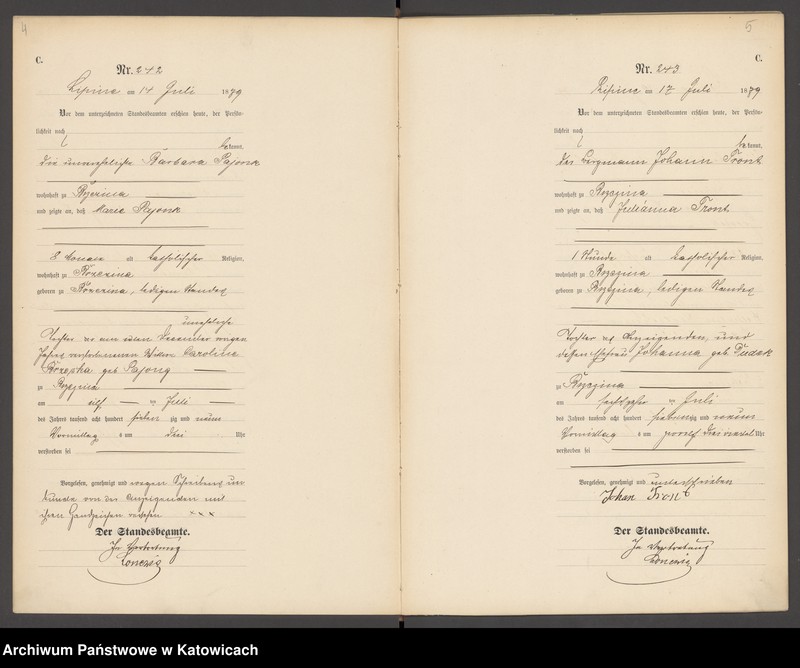 4
C.
Nr. 242
Lipine am 14 Juli 1879
Vor dem unterzeichneten Standesbeamten erschien heute, der Persön-
lichkeit nach
bekannt,
die unverehelichte Barbara Pajonk
wohnhaft zu
und zeigte an, daß Marie Pajonk
8 Monate alt katholischer Religion,
wohnhaft zu
geboren zu ledigen Standes
uneheliche
Tochter der am
Jahres verstorbenen Wittwe Caroline
geb Pajong
zu
am eilf ten Juli
des Jahres tausend acht hundert sieben zig und neun
Vormittag s um drei Uhr
verstorben sei
Vorgelesen, genehmigt und wegen Schreibens un-
kunde von der Anzeigenden mit
ihrem Handzeichen versehen xxx
Der Standesbeamte.
In Vertretung
5
C.
Nr. 243
Lipine am 17 Juli 1879
Vor dem unterzeichneten Standesbeamten erschien heute, der Persön-
lichkeit nach
bekannt,
der Bergmann Johann Front
wohnhaft zu
und zeigte an, daß Julianna Front
1 Stunde alt katholischer Religion,
wohnhaft zu
geboren zu ledigen Standes
Tochter des Anzeigenden, und
dessen Ehefrau Johanna geb. Dudek
zu
am sechszehn ten Juli
des Jahres tausend acht hundert siebenzig und neun
Vormittag s um zwölf dreiviertel Uhr
verstorben sei
Vorgelesen, genehmigt und unterschrieben
Johan Front
Der Standesbeamte.
In Vertretung
Archiwum Państwowe w Katowicach